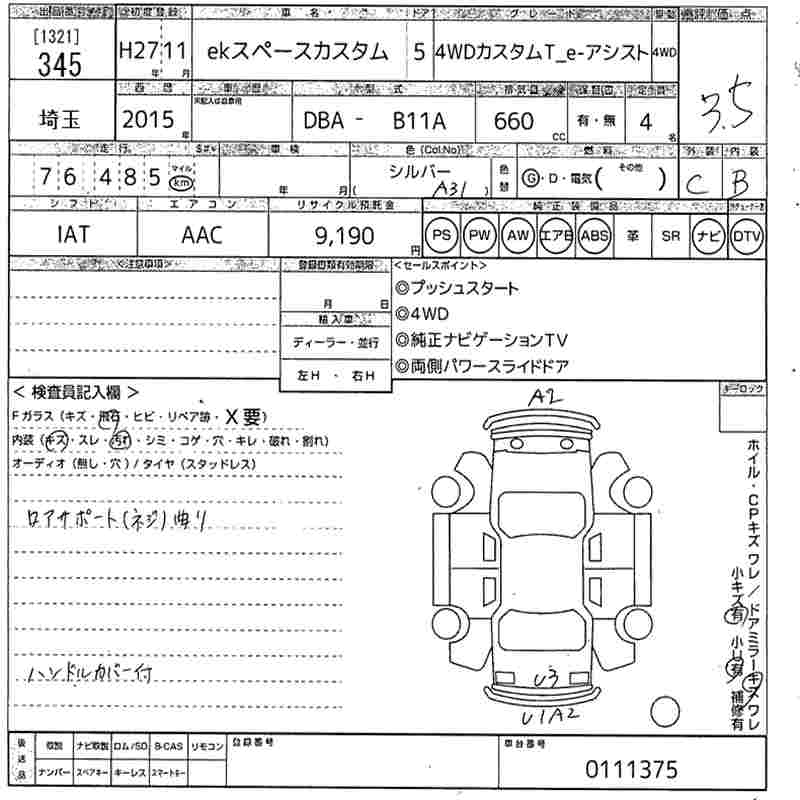 出品番号 初度登録 車名 ドア グレード 車歴 評価点
[1321]
345 H27 11 ekスペースカスタム 5 4WDカスタムT_e-アシスト 4WD
年 月
西暦 型式 排気量 定員
埼玉 2015年 DBA - B11A 660 cc 有・無 4名 3.5
走行 車検 色(Col.No) 燃料 外装 内装
76,485 マイル km 年 月 シルバー ( A31 ) 色替 G・D・電気( その他 ) C B
シフト エアコン リサイクル預託金 純正装備品
IAT AAC 9,190円 PS PW AW エアB ABS 革 SR ナビ DTV
<注意事項> 登録書類有効期限 <セールスポイント>
月 日
◎プッシュスタート
輸入車
◎4WD
ディーラー・並行
◎純正ナビゲーションTV
左H ・ 右H
◎両側パワースライドドア
< 検査員記入欄 >
キーロック
Fガラス(キズ・飛石・ヒビ・リペア跡・X要)
内装(キズ・スレ・汚れ・シミ・コゲ・穴・キレ・破れ・割れ)
オーディオ(無し・穴)/タイヤ(スタッドレス)
ロアサポート(ネジ)曲り
ハンドルカバー付
A2
U3
U1A2
ホイル・CPキズワレ/ドアミラーキズワレ
小キズ有 小凹有 補修有
後送品 取説 ナビ取説 ロム/SD B-CAS リモコン 登録番号 車台番号
ナンバー スペアキー キーレス スマートキー
0111375